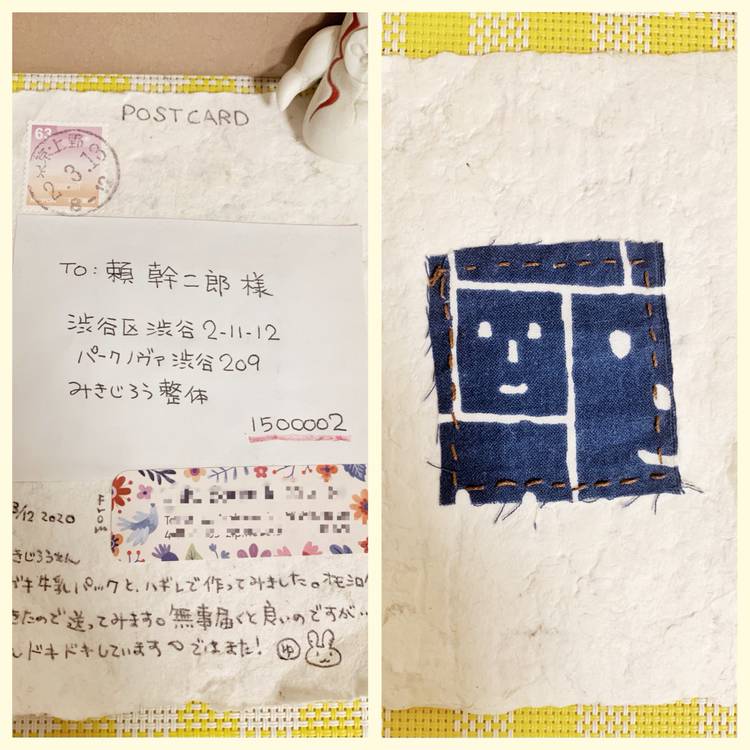 POSTCARD
63
東京・上野
2.3.13
8-
TO: 頼 幹二郎 様
渋谷区渋谷2-11-12
パークノヴァ渋谷209
みきじろう整体
1500002
From
3/12 2020
きじろうさん
ガキ牛乳パックと、ハギレで作ってみました。オモシロ
きたので送ってみます。無事届くと良いのですが…
ドキドキしています ではまた! ゆ